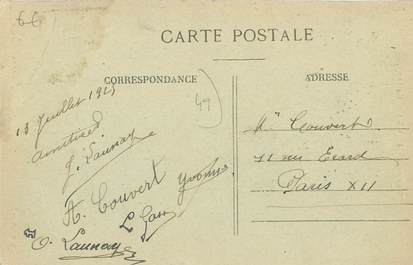 6€
CARTE POSTALE
CORRESPONDANCE
ADRESSE
49
Juillet
Launay
A. Couvert
Yvonne
O. Launay
Couvert
11 rue Erard
Paris XII